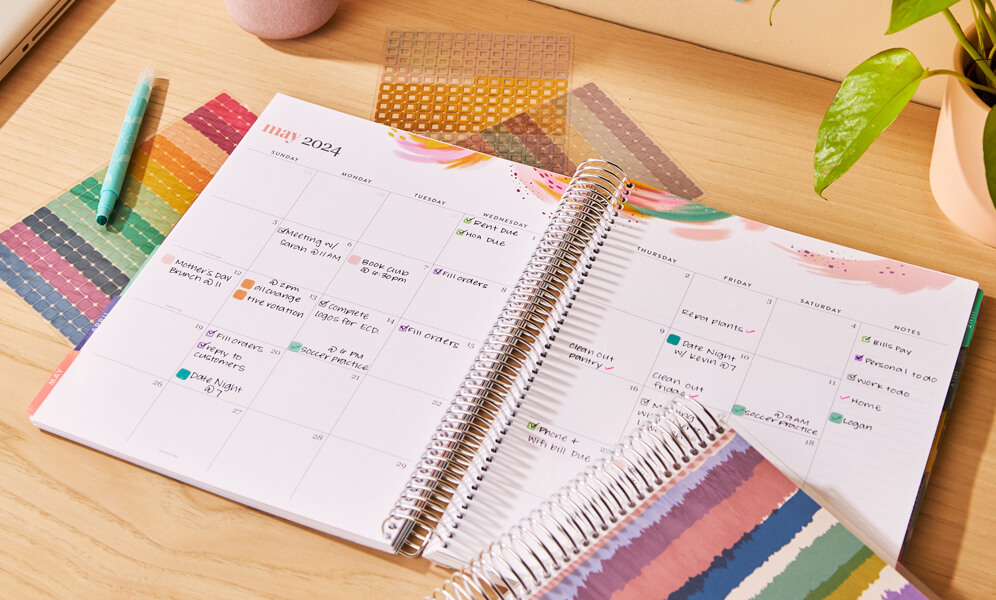 may 2024
SUNDAY
MONDAY
TUESDAY
WEDNESDAY
THURSDAY
FRIDAY
SATURDAY
NOTES
Rent Due
HOA Due
2
3
4
5
Meeting w/
Sarah @ 11AM
6
Book Club
@ 6:30pm
7
Fill orders
8
Repot plants
10
Date Night
w/ Kevin @7
11
Mother's Day
Brunch @ 11
12
@ 2pm
oil change
tire rotation
13
Complete
logos for ECD
14
Fill orders
15
Clean out
pantry
16
Clean out
fridge
@ 9AM
Soccer practice
18
19
Fill orders
reply to
customers
20
@ 6 PM
Soccer practice
21
22
Phone +
Wifi bill Due
Date Night
@ 7
26
27
28
29
Bills Pay
Personal to do
Work to do
Home
Logan
MAY
APRIL